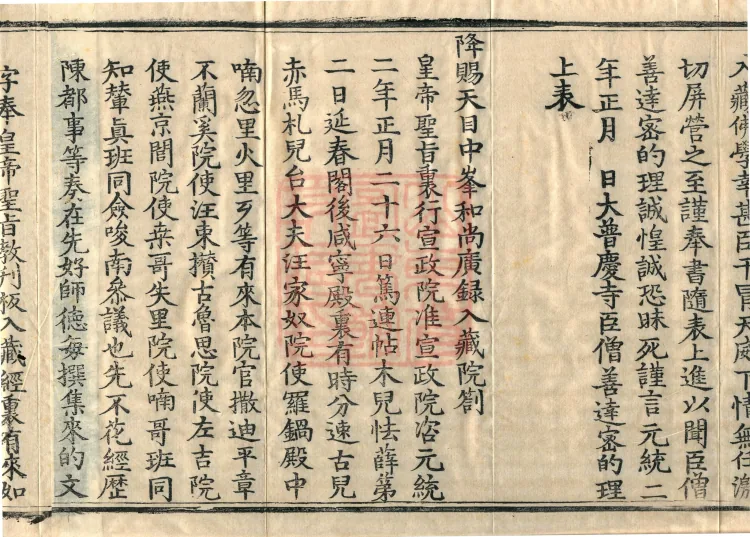 入藏佛學幸甚臣干冒天威下情無任激
切屏營之至謹奉書隨表上進以聞臣僧
善達密的理誠惶誠恐昧死謹言元統二
年正月　日大普慶寺臣僧善達密的理
上表
降賜天目中峯和尚廣録入藏院劄
皇帝聖旨裏行宣政院准宣政院咨元統
二年正月二十六日篤連帖木兒怯薛第
二日延春閣後咸寧殿裏有時分速古兒
赤馬札兒台大夫汪家奴院使羅鍋殿中
喃忽里火里歹等有來本院官撒迪平章
不蘭奚院使汪東攢古魯思院使左吉院
使燕京閭院使桒哥失里院使喃哥班同
知輦真班同僉唆南叅議也先不花經歷
陳都事等奏在先好師德每撰集來的文
字奉皇帝聖旨教刋板入藏經裏有來如